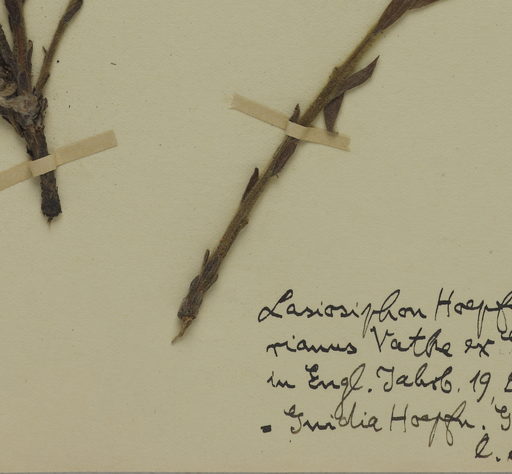 Lasiosiphon Hoepf
rianus Vatke ex
in Engl. Jahrb. 19,
= Gnidia Hoepfn. G
l.